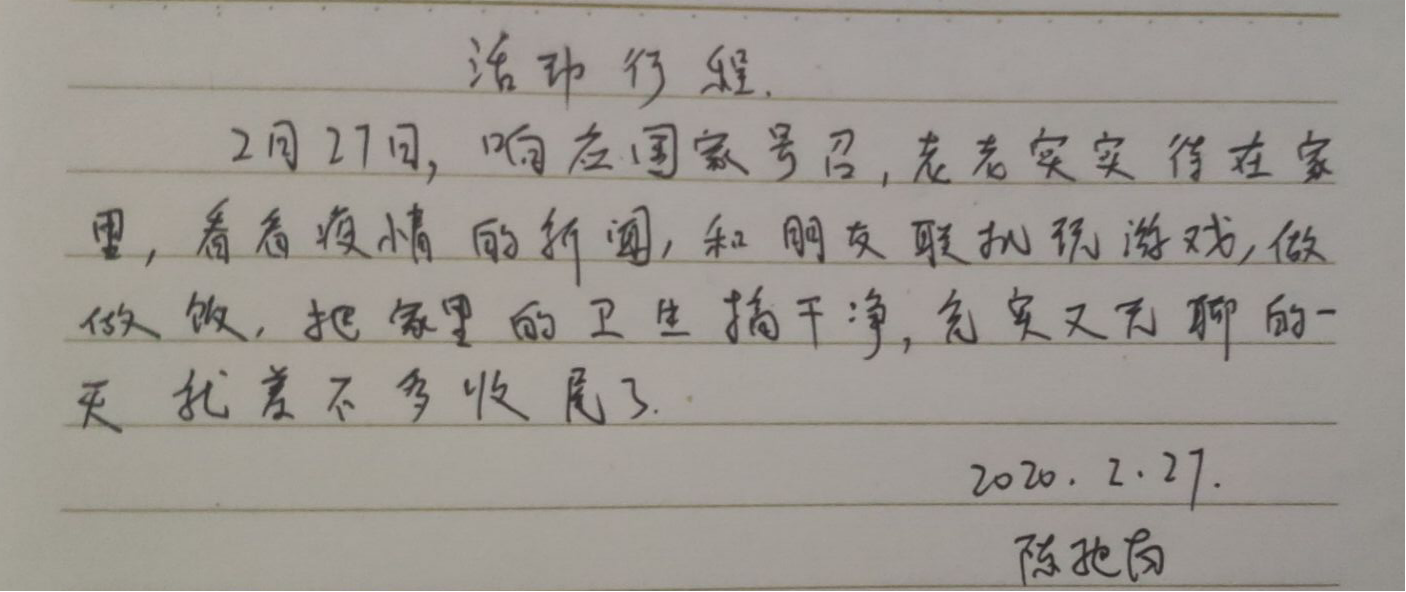 活动行程.
2月27日,响应国家号召,老老实实待在家
里,看看疫情的新闻,和朋友联机玩游戏,做
做饭,把家里的卫生搞干净,充实又无聊的一
天就差不多收尾了.
2020.2.27.
陈